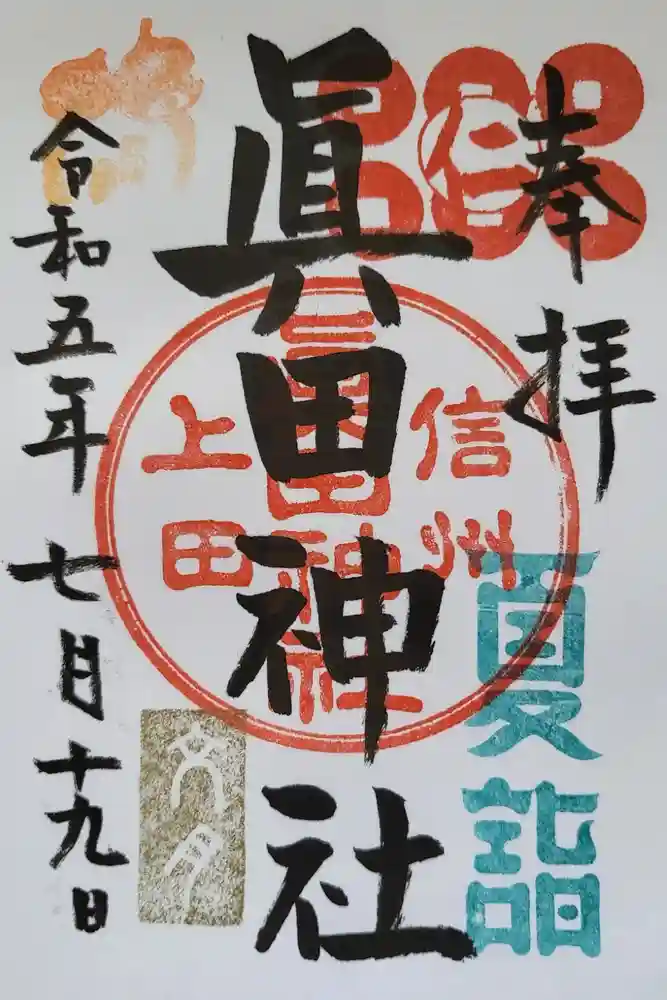 奉拝
仁
眞田神社
信州
眞田神社
上田
夏詣
令和五年七月十九日
文月